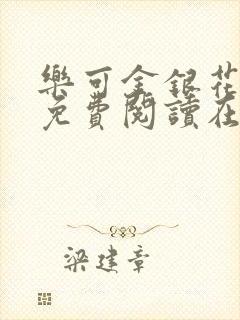 樂可金銀花
免費閱讀在
梁建章